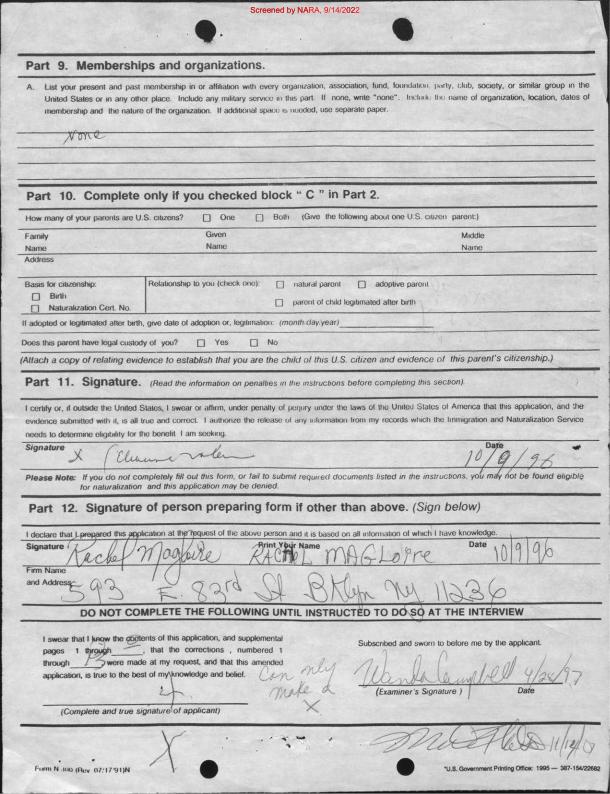 Screened by NARA, 9/14/2022
Part 9. Memberships and organizations.
A. List your present and past membership in or affiliation with every organization, association, fund, foundation, party, club, society, or similar group in the
United States or in any other place. Include any military service in this part. If none, write "none". Include the name of organization, location, dates of
membership and the nature of the organization. If additional space is needed, use separate paper.
None
Part 10. Complete only if you checked block " C " in Part 2.
How many of your parents are U.S. citizens? One Both (Give the following about one U.S. citizen parent:)
Family Given Middle
Name Name Name
Address
Basis for citizenship: Relationship to you (check one): natural parent adoptive parent
Birth parent of child legitimated after birth
Naturalization Cert. No.
If adopted or legitimated after birth, give date of adoption or, legitimation: (month/day/year)
Does this parent have legal custody of you? Yes No
(Attach a copy of relating evidence to establish that you are the child of this U.S. citizen and evidence of this parent's citizenship.)
Part 11. Signature. (Read the information on penalties in the instructions before completing this section).
I certify or, if outside the United States, I swear or affirm, under penalty of perjury under the laws of the United States of America that this application, and the
evidence submitted with it, is all true and correct. I authorize the release of any information from my records which the Immigration and Naturalization Service
needs to determine eligibility for the benefit I am seeking.
Signature Date
X 10/9/96
Please Note: If you do not completely fill out this form, or fail to submit required documents listed in the instructions, you may not be found eligible
for naturalization and this application may be denied.
Part 12. Signature of person preparing form if other than above. (Sign below)
I declare that I prepared this application at the request of the above person and it is based on all information of which I have knowledge.
Signature Rachel Magloire Print Your Name RACHEL MAGLOIRE Date 10/9/96
Firm Name
and Address 593 E. 83rd St BKlyn Ny 11236
DO NOT COMPLETE THE FOLLOWING UNTIL INSTRUCTED TO DO SO AT THE INTERVIEW
I swear that I know the contents of this application, and supplemental
pages 1 through , that the corrections , numbered 1
through 13 were made at my request, and that this amended
application, is true to the best of my knowledge and belief.
(Complete and true signature of applicant)
Can only
make a
X
Subscribed and sworn to before me by the applicant.
Wanda Campbell 4/28/97
(Examiner's Signature ) Date
X
Form N-400 (Rev. 07/17/91)N
*U.S. Government Printing Office: 1995 — 387-154/22682